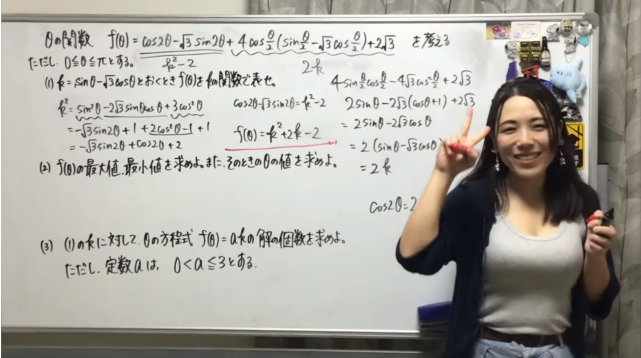 θの関数 f(θ)=cos2θ-√3 sin2θ+4cos θ/2 (sin θ/2 -√3 cos θ/2)+2√3 を考える
ただし、0≦θ≦πとする。
k²-2
2k
(1) k=sinθ-√3cosθとおくときf(θ)をkの関数で表せ。
k²=sin²θ-2√3sinθcosθ+3cos²θ
=-√3sin2θ+1+2cos²θ-1+1
=-√3sin2θ+cos2θ+2
cos2θ-√3sin2θ=k²-2
f(θ)=k²+2k-2
4sin θ/2 cos θ/2 -4√3cos² θ/2 +2√3
2sinθ-2√3(cosθ+1)+2√3
=2sinθ-2√3cosθ
=2(sinθ-√3cosθ)
=2k
cos2θ=2
(2) f(θ)の最大値、最小値を求めよ。また、そのときのθの値を求めよ。
(3) (1)のkに対して、θの方程式 f(θ)=akの解の個数を求めよ。
ただし、定数aは、0<a≦3とする。